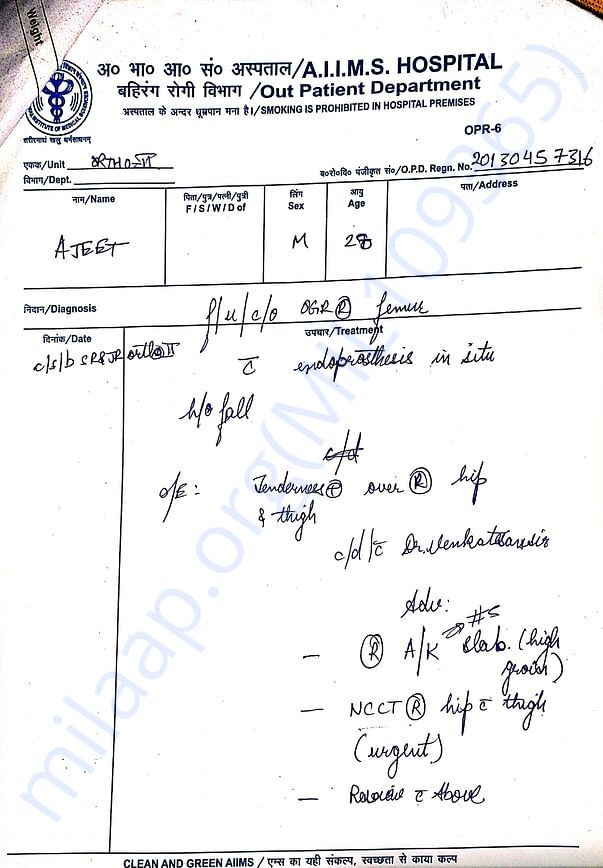 Weight
अ० भा० आ० सं० अस्पताल/A.I.I.M.S. HOSPITAL
बहिरंग रोगी विभाग /Out Patient Department
अस्पताल के अन्दर धूम्रपान मना है।/SMOKING IS PROHIBITED IN HOSPITAL PREMISES
शरीरमाद्यं खलु धर्मसाधनम्
OPR-6
एकक/Unit ORTHO-II
विभाग/Dept.
ब०रो०वि० पंजीकृत सं०/O.P.D. Regn. No. 20130457316
नाम/Name पिता/पुत्र/पत्नी/पुत्री F/S/W/D of लिंग Sex आयु Age पता/Address
AJEET M 28
निदान/Diagnosis f/u/c/o OGR (R) femur
दिनांक/Date उपचार/Treatment
c/s/b SR & JR ortho II
c̄ endoprosthesis in situ
h/o fall
o/E: Tenderness (+) over (R) hip
& thigh
c/d/c̄ Dr.
Adv:
#s
— (R) A/K slab. (high
groin)
— NCCT (R) hip c̄ thigh
(urgent)
— Review c̄ Above
CLEAN AND GREEN AIIMS / एम्स का यही संकल्प, स्वच्छता से काया कल्प
milaap.org(MILL109365)